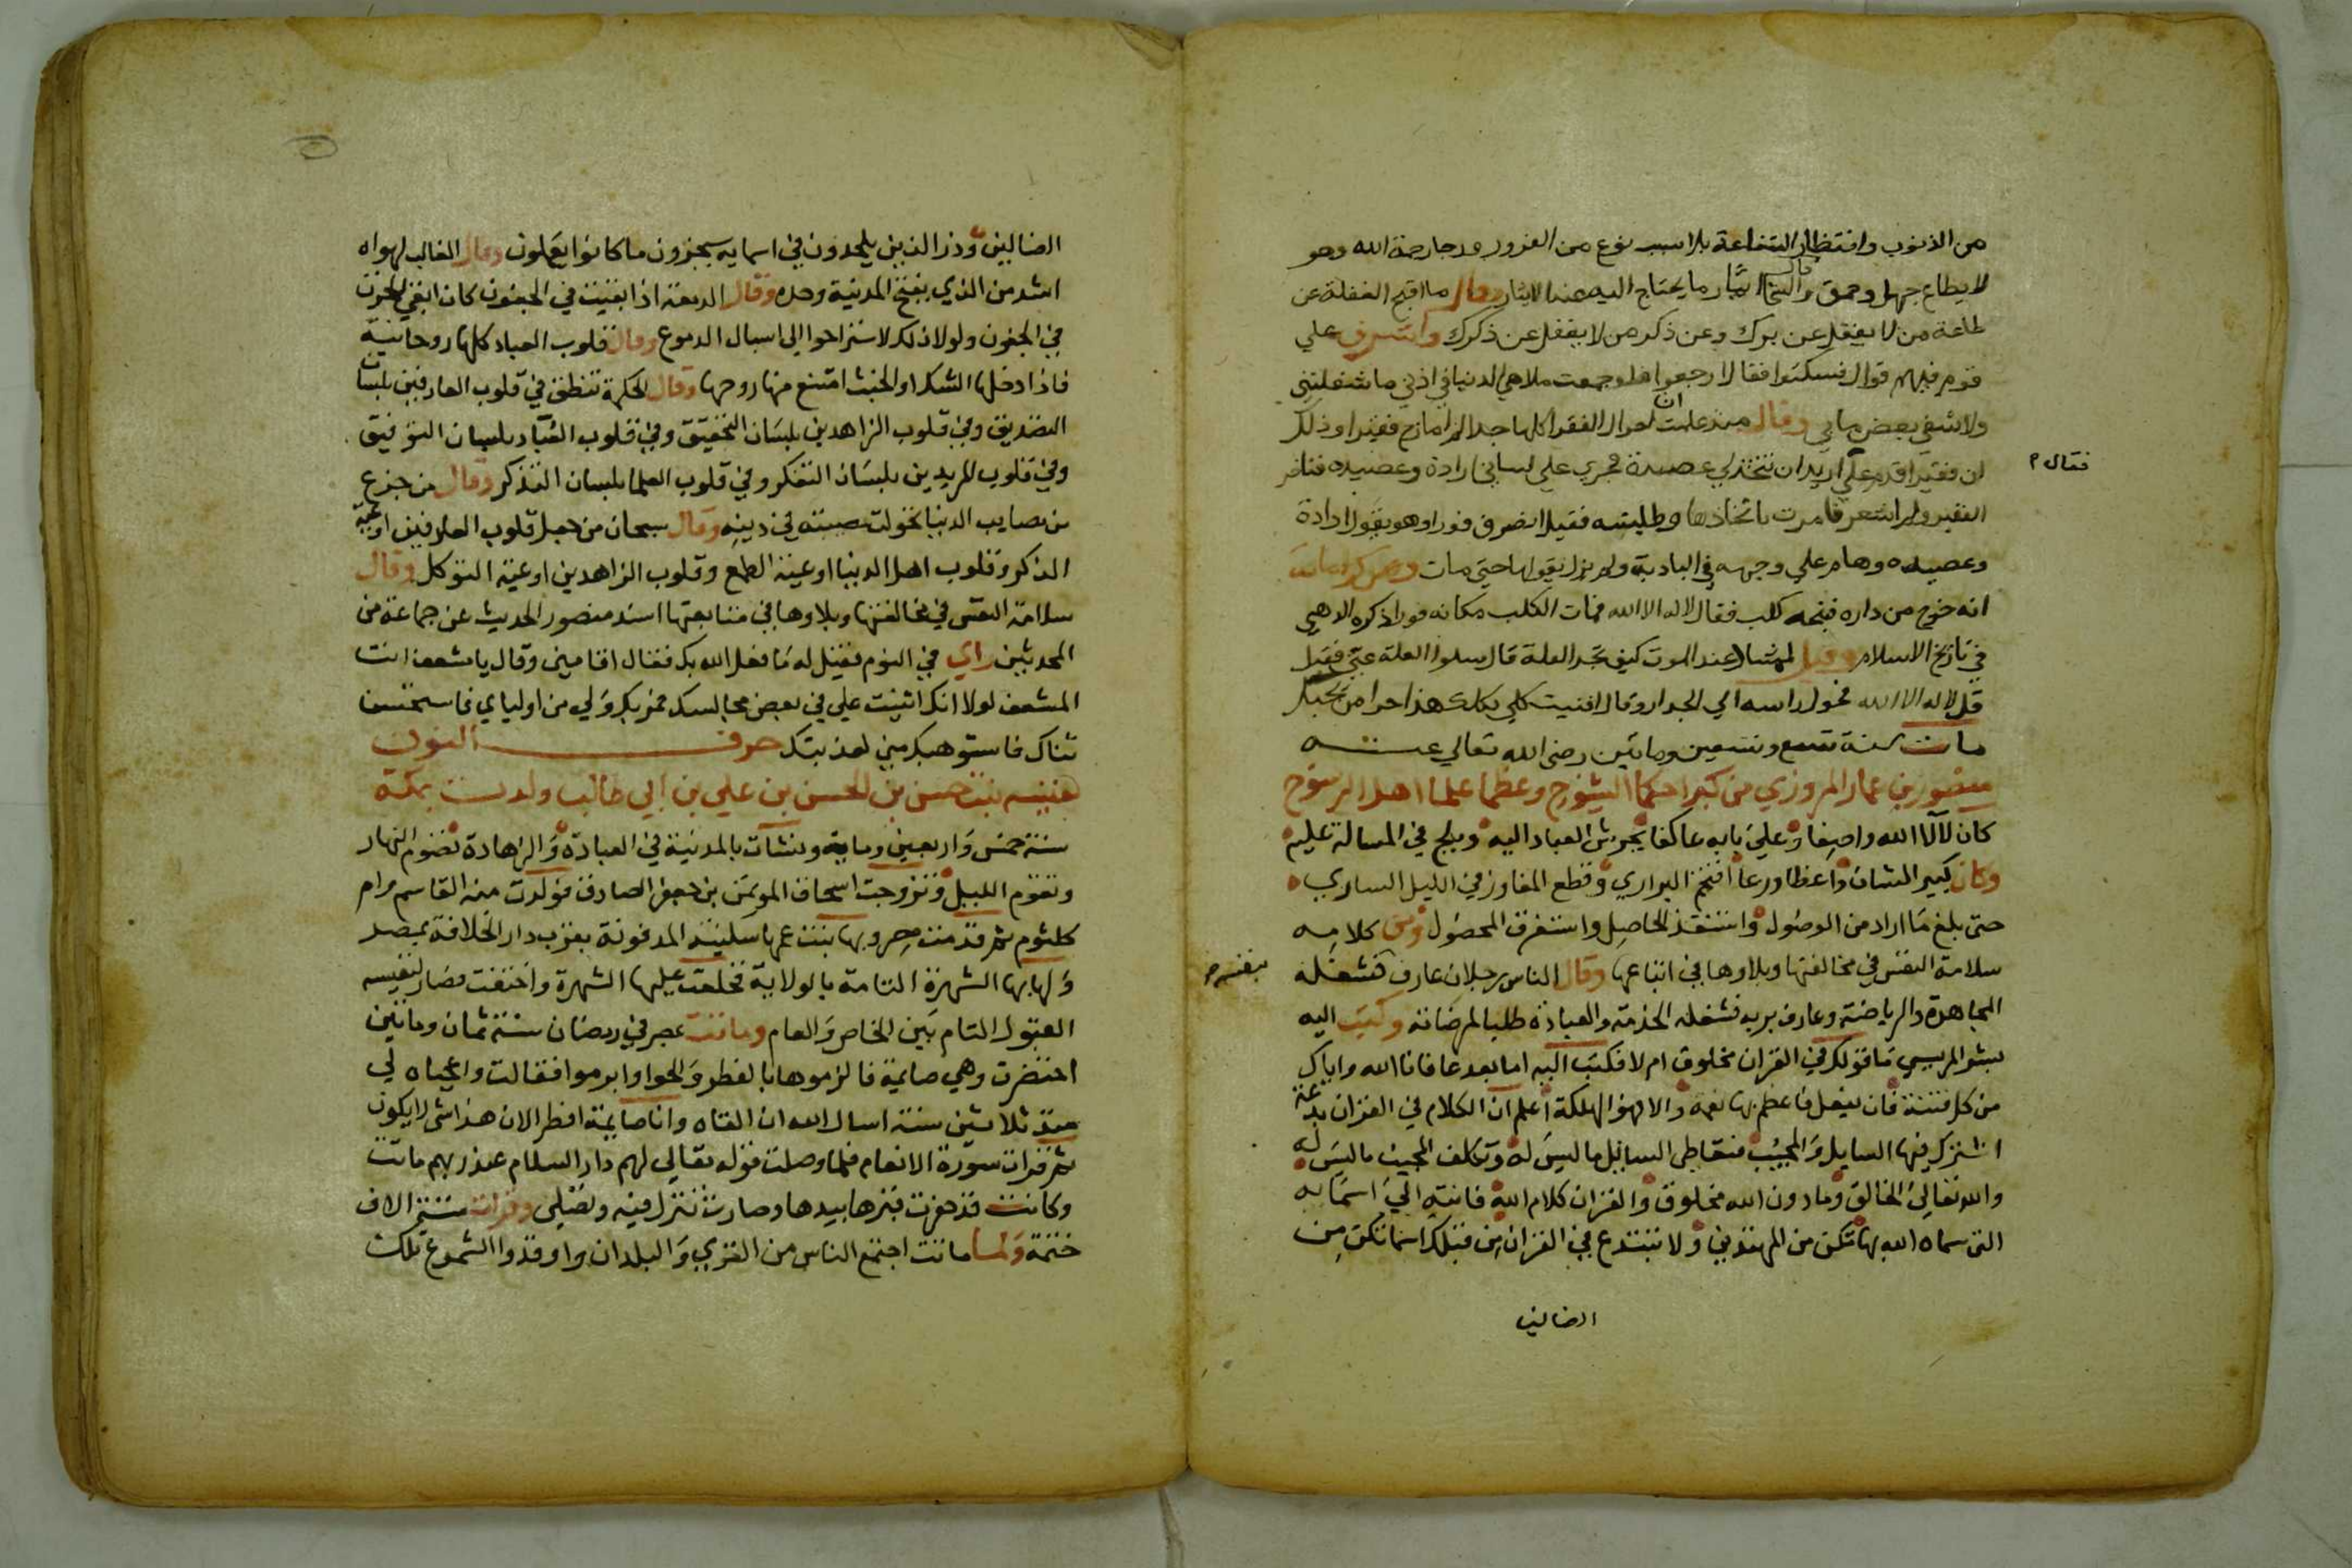 من الذنوب وانتظار الشفاعة بلا سبب نوع من الغرور ورجا رحمة الله وهو
لا يطاع جهل وحمق وقال السخا ايثار ما يحتاج اليه عند الايثار وقال ما اقبح الغفلة عن
طاعة من لا يغفل عن برك وعن ذكر من لا يغفل عن ذكرك واشرف علي
قوم فيهم قوال فسكتوا فقال ارجعوا فلو جمعت ملاهي الدنيا في اذني ما شغلتني
ولا شفي بعض ما بي وقال منذ علمت ان احوال الفقرا كلها جد لم امازح فقيرا وذلك
ان فقيرا قدم علي اريد ان تتخذ لي عصيدة فجري علي لساني ارادة وعصيده فتاخر
فقال
الفقير ولم اشعر فامرت باتخاذها وطلبته فقيل انصرف فورا وهو يقول ارادة
وعصيده وهام علي وجهه في البادية ولم يزل يقولها حتي مات ومن كراماته
انه خرج من داره فنبحه كلب فقال لا اله الا الله فمات الكلب مكانه فورا ذكره الذهبي
في تاريخ الاسلام وقيل لممشاد عند الموت كيف تجد العلة قال سلوا العلة عني فقيل
قل لا اله الا الله فحول راسه الي الجدار وقال افنيت كلي بكلك هذا جزا من يحبك
مات سنة تسع وتسعين ومائتين رضي الله تعالي عنه
منصور بن عمار المروزي من كبرا حكما الشيوخ وعظما علما اهل الرسوخ
كان لآلا الله واصفا وعلي بابه عاكفا يحوش العباد اليه ويلح في المسالة عليه
وكان كبير الشان واعظا ورعا اقتحم البراري وقطع المفاوز في الليل الساري
حتى بلغ ما اراد من الوصول واستنفذ الحاصل واستغرق المحصول ومن كلامه
سلامة النفس في مخالفتها وبلاوها في اتباعها وقال الناس رجلان عارف فشغله
بنفسه
المجاهدة والرياضة وعارف بربه فشغله الخدمة والعبادة طلبا لمرضاته وكتب اليه
بشر المريسي ما قولك في القران مخلوق ام لا فكتب اليه اما بعد عافانا الله واياك
من كل فتنة فان يفعل فاعظم بها نعمة والا فهو الهلكة اعلم ان الكلام في القران بدعة
اشترك فيها السايل والمجيب فتعاطى السايل ما ليس له وتكلف المجيب ما ليس له
والله تعالي الخالق وما دون الله مخلوق والقران كلام الله فانته الي اسمايه
التى سماه الله بها تكن من المهتدين ولا تبتدع في القران من قبلك اسما تكن من
الضالين
الضالين وذر الذين يلحدون في اسمايه سيجزون ما كانوا يعملون وقال الغالب لهواه
اشد من الذي يفتح المدينة وحده وقال الدمعة اذا بقيت في الجفون كان ابقي للحزن
في الجفون ولولا ذلك لاستراحوا الي اسبال الدموع وقال قلوب العباد كلها روحانية
فاذا دخلها الشك او الخبث امتنع منها روحها وقال الحكمة تنطق في قلوب العارفين بلسان
التصديق وفي قلوب الزاهدين بلسان التحقيق وفي قلوب العباد بلسان التوفيق
وفي قلوب المريدين بلسان التفكر وفي قلوب العلما بلسان التذكر وقال من جزع
من مصايب الدنيا تحولت مصيبته في دينه وقال سبحان من جعل قلوب العارفين اوعية
الذكر وقلوب اهل الدنيا اوعية الطمع وقلوب الزاهدين اوعية التوكل وقال
سلامة النفس في مخالفتها وبلاوها في متابعتها اسند منصور الحديث عن جماعة من
المحدثين راي في النوم فقيل له ما فعل الله بك فقال اقامني وقال يا
لولا انك اثنيت علي في بعض مجالسك فمر بك ولي من اوليائي فاستحسن
ثناك فاستوهبك مني لعذبتك حرف النون
نفيسه بنت حسن بن الحسن بن علي بن ابي طالب ولدت بمكة
سنة خمس واربعين وماية ونشات بالمدينة في العبادة والزهادة تصوم النهار
وتقوم الليل وتزوجت اسحاق الموتمن بن جعفر الصادق فولدت منه القاسم وام
كلثوم ثم قدمت مصر وبها بنت عمها سكينة المدفونة بقرب دار الخلافة بمصر
ولها بها الشهرة التامة بالولاية فخلعت عليها الشهرة واختفت فصار لنفيسه
القبول التام بين الخاص والعام وماتت بمصر في رمضان سنة ثمان ومائتين
احتضرت وهي صايمة فالزموها بالفطر والحوا وابرموا فقالت واعجباه لي
منذ ثلاثين سنة اسال الله ان القاه وانا صايمة افطر الان هذا شي لا يكون
ثم قرات سورة الانعام فلما وصلت قوله تعالي لهم دار السلام عند ربهم ماتت
وكانت قد حفرت قبرها بيدها وصارت تنزل فيه وتصلى وقرات ستة الاف
ختمة ولما ماتت اجتمع الناس من القري والبلدان واوقدوا الشموع تلك